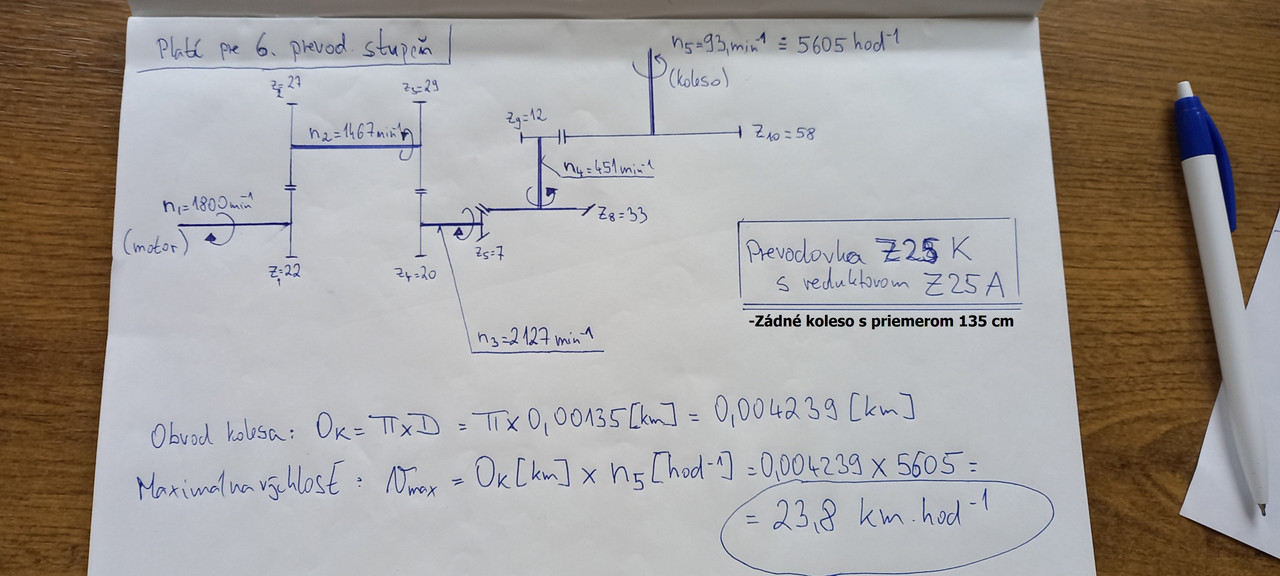 Platí pre 6. prevod. stupeň
n₅=93,min⁻¹ ≐ 5605 hod⁻¹
(koleso)
z₂=27
z₃=29
n₂=1467min⁻¹
z₉=12
z₁₀=58
n₄=451min⁻¹
n₁=1800min⁻¹
(motor)
z₈=33
z₅=7
z₁=22
z₄=20
n₃=2127min⁻¹
Prevodovka Z25 K
s reduktorom Z25A
-Zádné koleso s priemerom 135 cm
Obvod kolesa: Oₖ= π×D = π× 0,00135[km] = 0,004239 [km]
Maximálna rýchlosť : Vmax = Oₖ[km] × n₅[hod⁻¹] =0,004239 × 5605 =
= 23,8 km.hod⁻¹